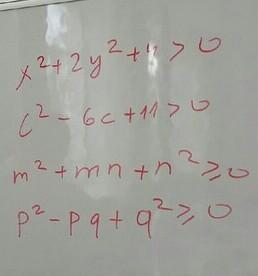 x² + 2y² + 4 > 0
c² - 6c + 11 > 0
m² + mn + n² ≥ 0
p² - pq + q² ≥ 0